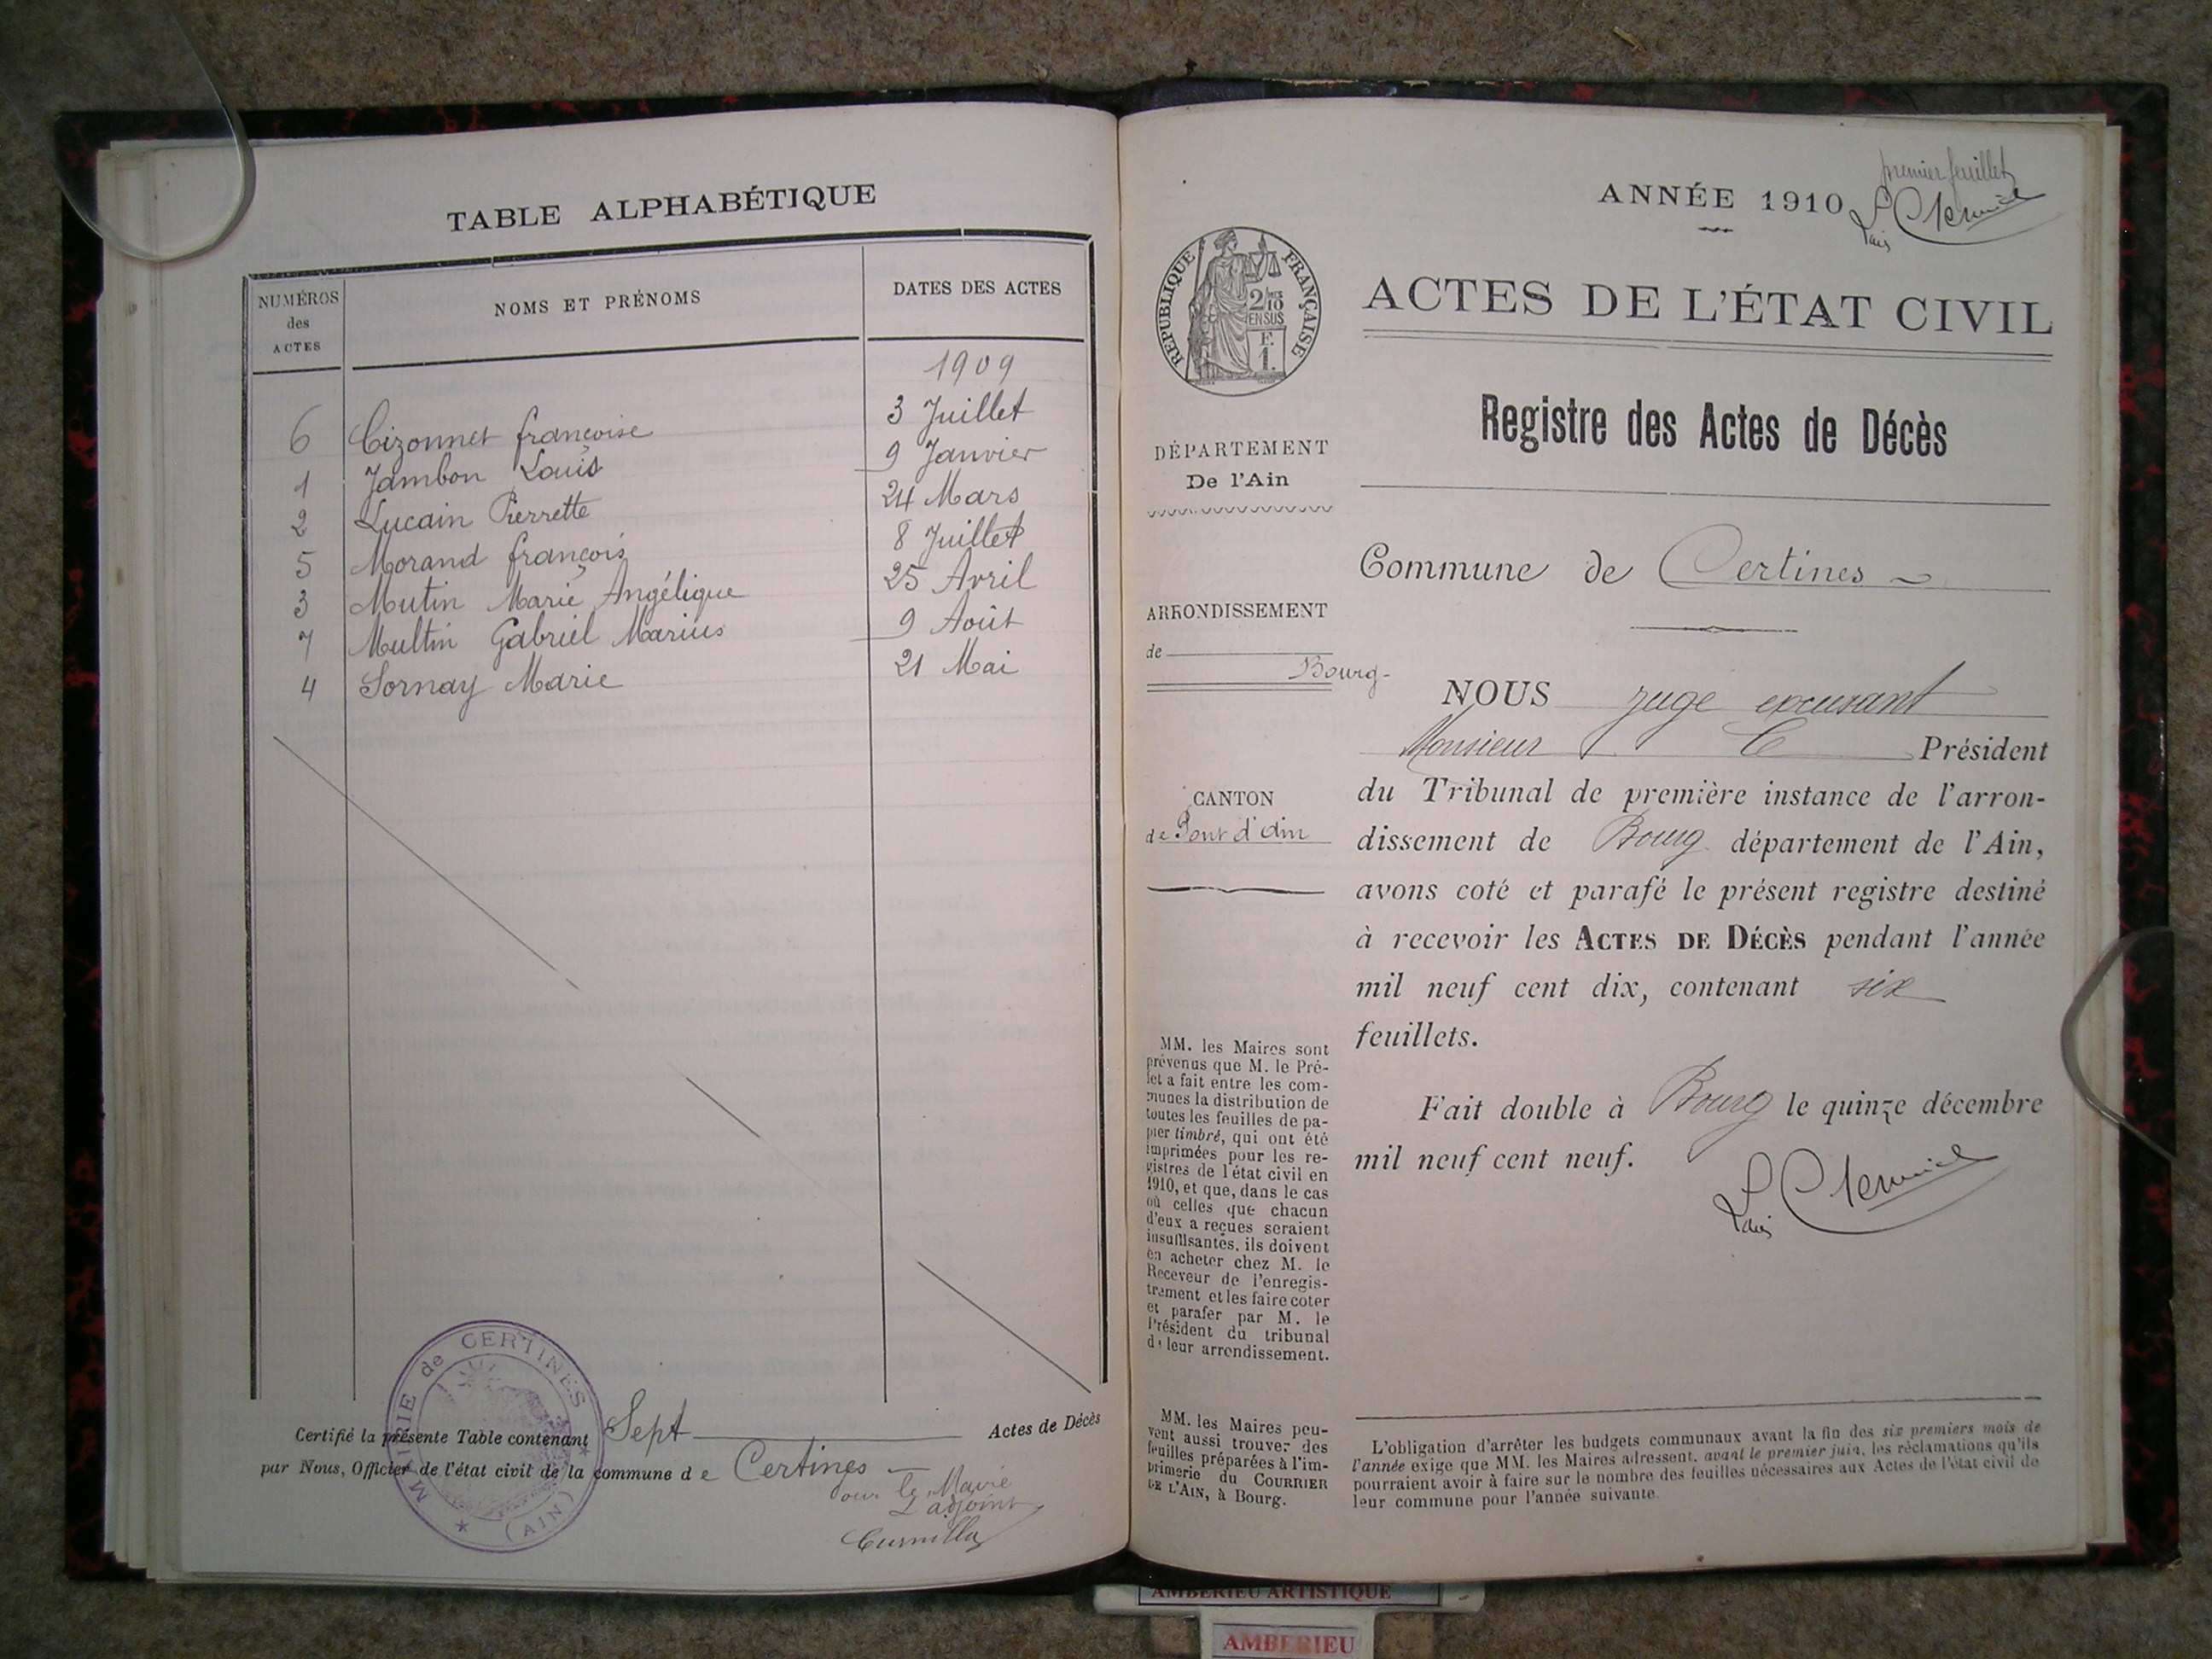 TABLE ALPHABÉTIQUE
NUMÉROS des ACTES
NOMS ET PRÉNOMS
DATES DES ACTES
1909
6 Cizonnet françoise 3 Juillet
1 Jambon Louis 9 Janvier
2 Lucain Pierrette 24 Mars
5 Morand françois 8 Juillet
3 Mutin Marie Angélique 25 Avril
7 Multin Gabriel Marius 9 Août
4 Sornay Marie 21 Mai
MAIRIE de CERTINES
(AIN)
Certifié la présente Table contenant Sept Actes de Décès
par Nous, Officier de l'état civil de la commune de Certines
Pour le Maire
L'adjoint
premier feuillet
ANNÉE 1910
RÉPUBLIQUE FRANÇAISE
2/10
EN SUS
F.
1.
ACTES DE L'ÉTAT CIVIL
Registre des Actes de Décès
DÉPARTEMENT
De l'Ain
ARRONDISSEMENT
de Bourg-
CANTON
de Pont d'Ain
Commune de Certines
NOUS juge excusant
Monsieur le Président
du Tribunal de première instance de l'arron-
dissement de Bourg département de l'Ain,
avons coté et parafé le présent registre destiné
à recevoir les ACTES DE DÉCÈS pendant l'année
mil neuf cent dix, contenant six
feuillets.
Fait double à Bourg le quinze décembre
mil neuf cent neuf.
MM. les Maires sont
prévenus que M. le Pré-
fet a fait entre les com-
munes la distribution de
toutes les feuilles de pa-
pier timbré, qui ont été
imprimées pour les re-
gistres de l'état civil en
1910, et que, dans le cas
où celles que chacun
d'eux a reçues seraient
insuffisantes, ils doivent
en acheter chez M. le
Receveur de l'enregis-
trement et les faire coter
et parafer par M. le
Président du tribunal
de leur arrondissement.
MM. les Maires peu-
vent aussi trouver des
feuilles préparées à l'im-
primerie du COURRIER
DE L'AIN, à Bourg.
L'obligation d'arrêter les budgets communaux avant la fin des six premiers mois de
l'année exige que MM. les Maires adressent, avant le premier juin, les réclamations qu'ils
pourraient avoir à faire sur le nombre des feuilles nécessaires aux Actes de l'état civil de
leur commune pour l'année suivante.
AMBERIEU ARTISTIQUE
AMBERIEU